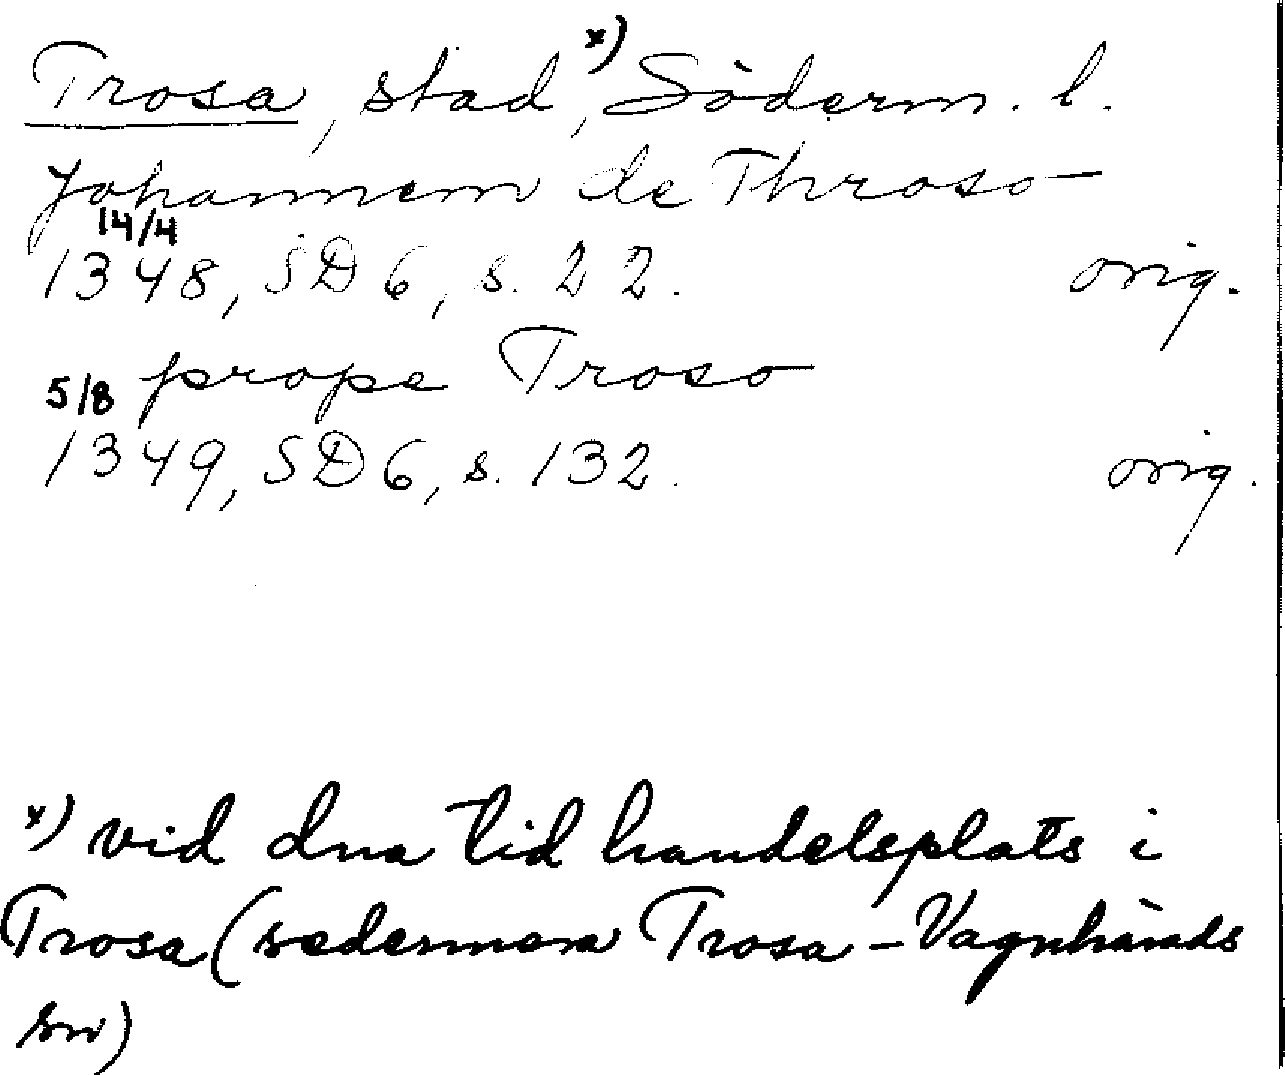 Trosa, stad,ˣ⁾ Söderm. l.
Johannem de Throso
14/4
1348, SD 6, s. 22. orig.
prope Troso
5/8
1349, SD 6, s. 132. orig.
x) vid dna tid handelsplats i
Trosa (sedermera Trosa-Vagnhärads
sn)